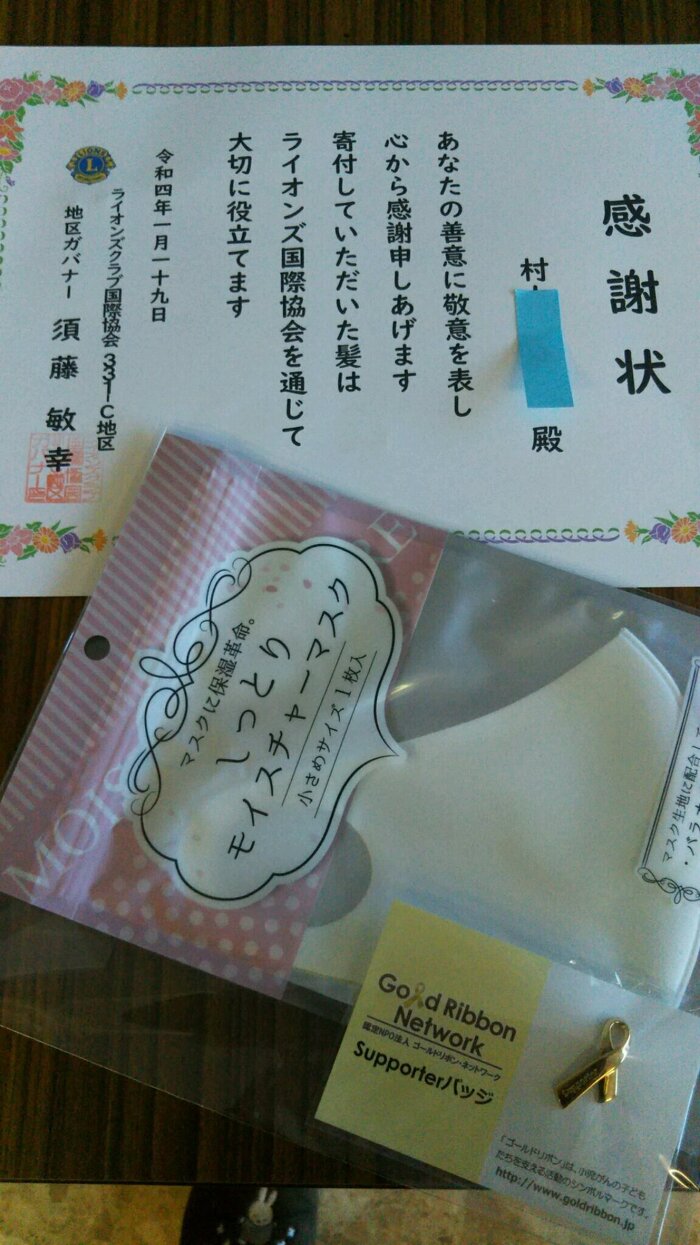 感謝状
村
殿
あなたの善意に敬意を表し
心から感謝申しあげます
寄付していただいた髪は
ライオンズ国際協会を通じて
大切に役立てます
令和四年一月一十九日
ライオンズクラブ国際協会 331-C地区
地区ガバナー 須藤 敏幸
マスクに保湿革命。
しっとり
モイスチャーマスク
小さめサイズ1枚入
マスク生地に配合し
Gold Ribbon
Network
認定NPO法人 ゴールドリボン・ネットワーク
Supporterバッジ
「ゴールドリボン」は、小児がんの子ども
たちを支える活動のシンボルマークです。
http://www.goldribbon.jp